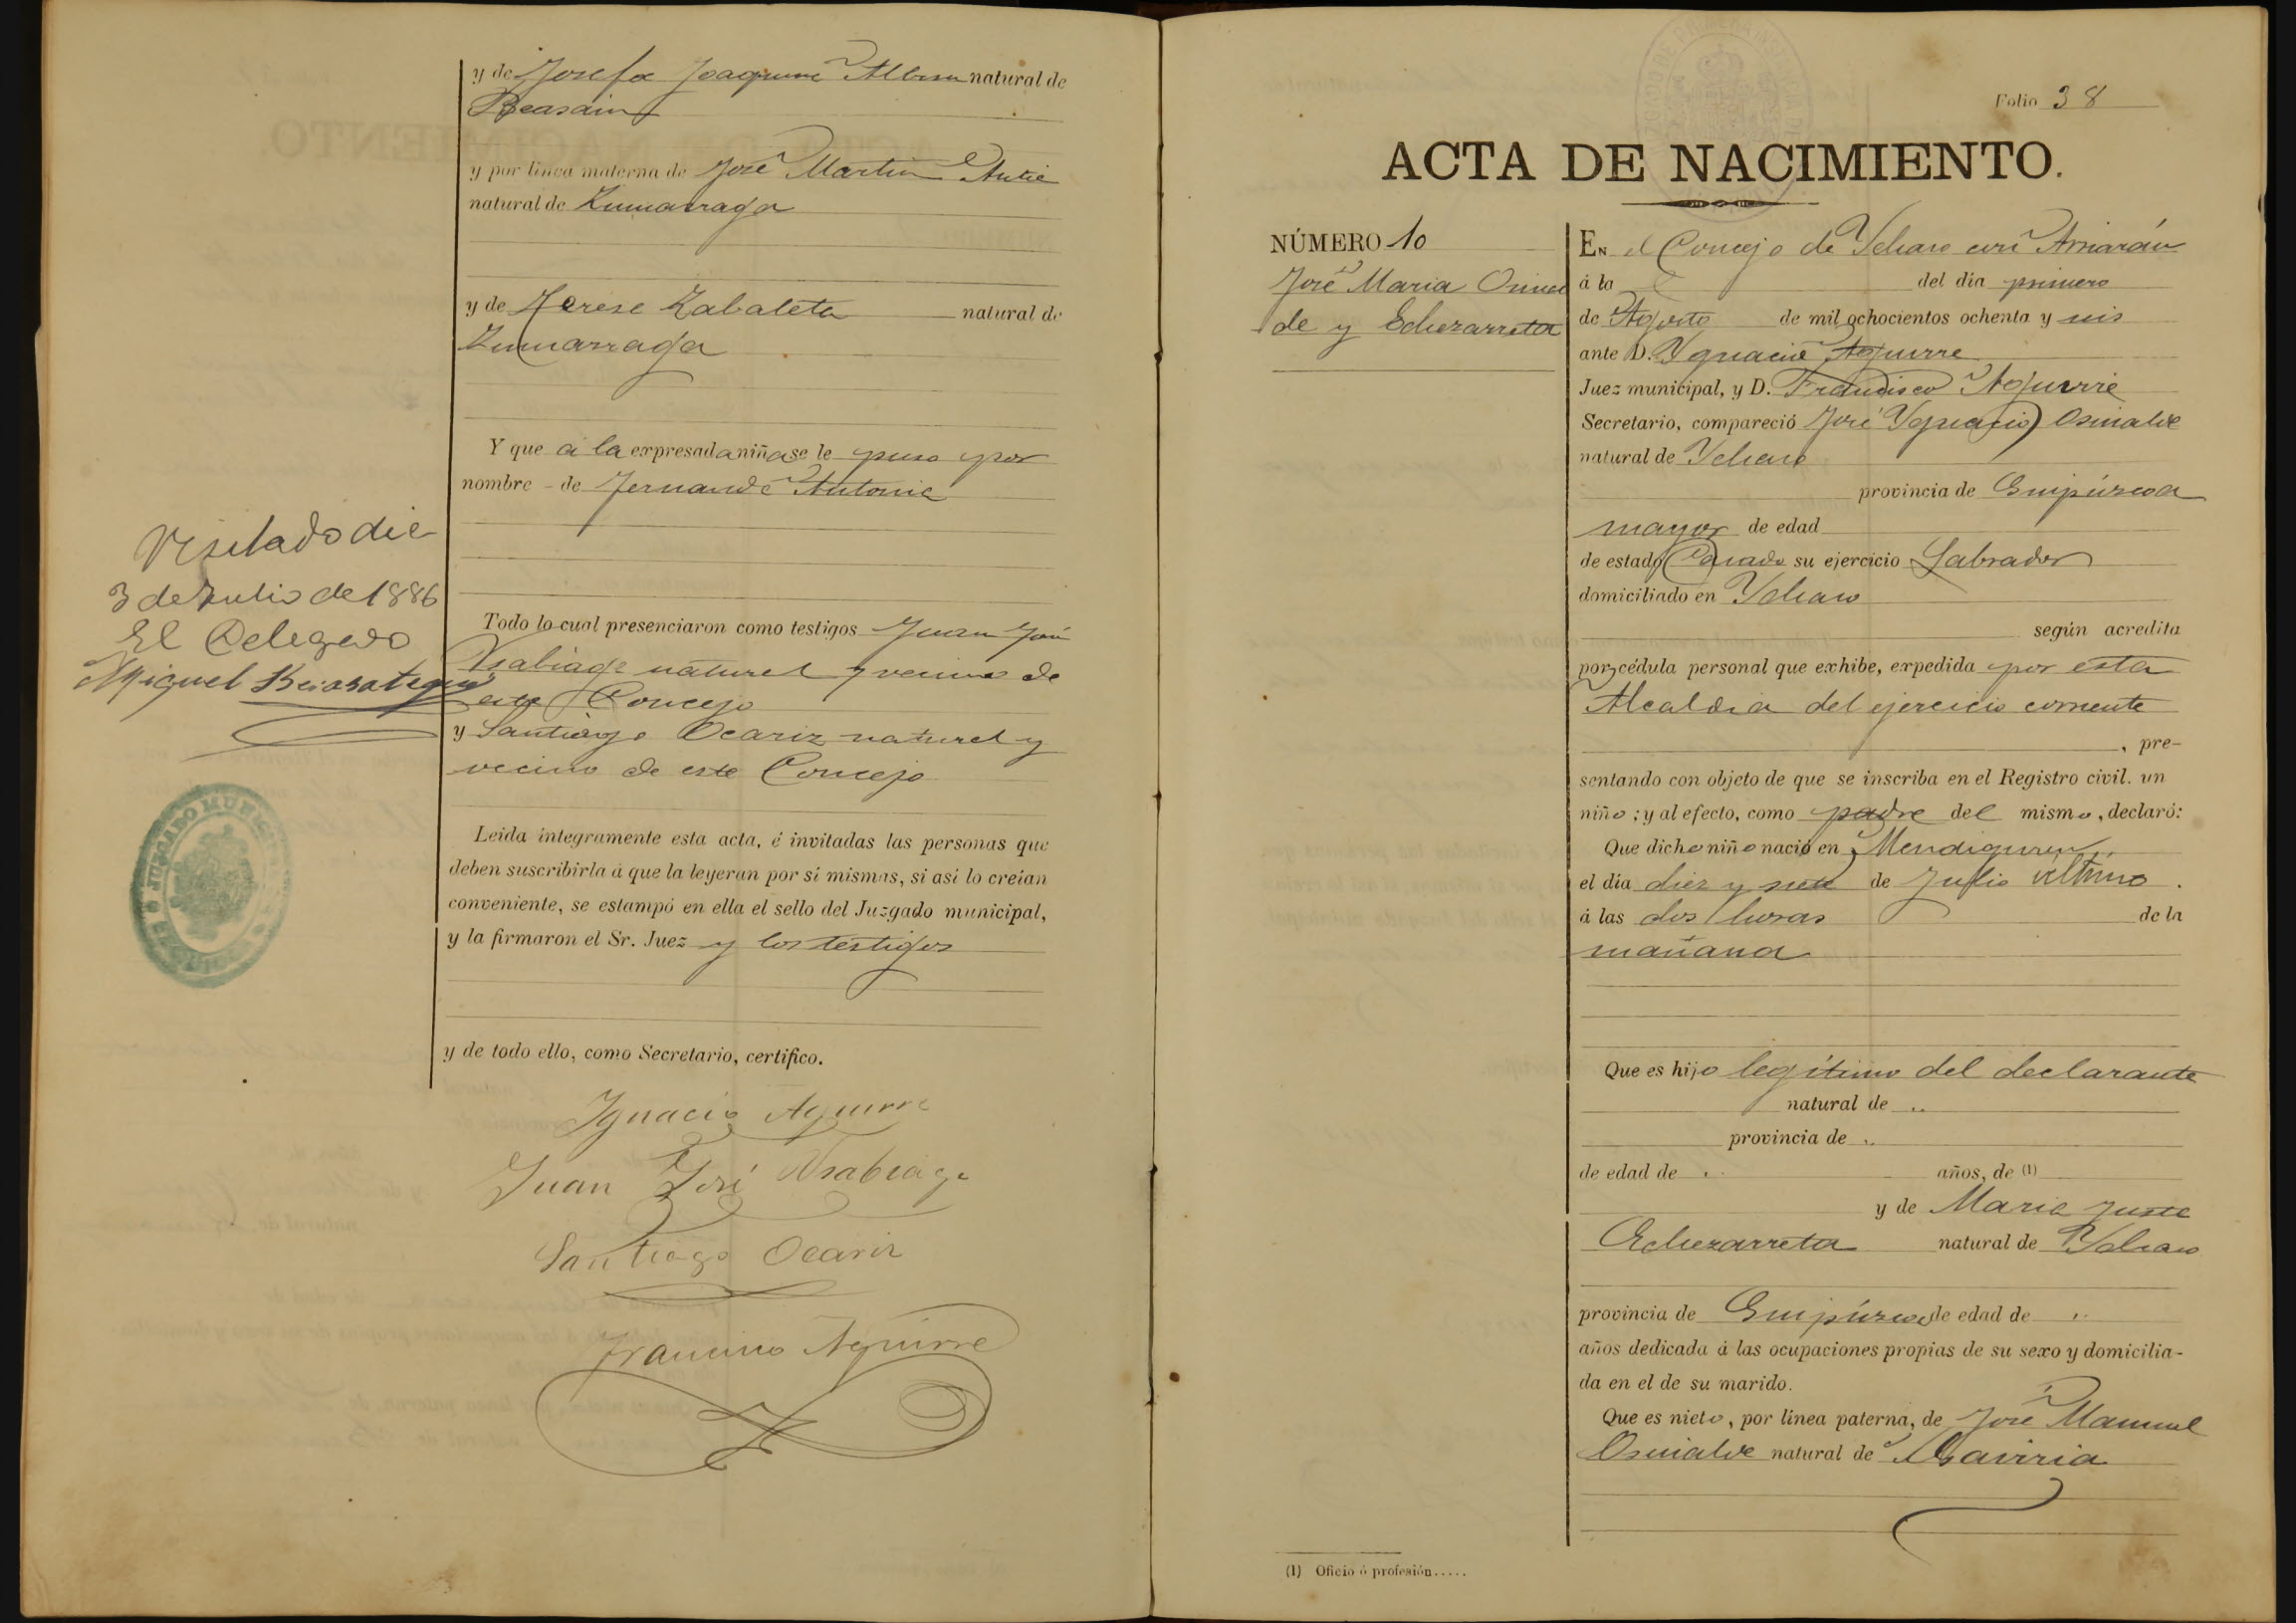 y de Josefa Joaquina Albisu natural de
Beasain
y por línea materna de José Martin Antia
natural de Zumarraga
y de Teresa Zabaleta natural de
Zumarraga
Y que a la expresada niña se le puso por
nombre - de Fernanda Antonia
Todo lo cual presenciaron como testigos Juan José
Usabiaga natural y vecino de
este Concejo
y Santiago Ocariz natural y
vecino de este Concejo
Leida íntegramente esta acta, é invitadas las personas que
deben suscribirla á que la leyeran por sí mismas, si así lo creían
conveniente, se estampó en ella el sello del Juzgado municipal,
y la firmaron el Sr. Juez y los testigos
y de todo ello, como Secretario, certifico.
Ignacio Aguirre
Juan José Usabiaga
Santiago Ocariz
Francisco Aguirre
Visitado dia
3 de Julio de 1886
El Delegado
Miguel
JUZGADO MUNICIPAL
Folio 38
ACTA DE NACIMIENTO.
NÚMERO 10
José Maria Osinal
de y Echezarreta
EN el Concejo de Ychaso con Arriarán
á la del día primero
de Agosto de mil ochocientos ochenta y seis
ante D. Ygnacio Aguirre
Juez municipal, y D. Francisco Aguirre
Secretario, compareció José Ygnacio Osinalde
natural de Ychaso
provincia de Guipúzcoa
mayor de edad
de estado Casado su ejercicio Labrador
domiciliado en Ychaso
según acredita
por cédula personal que exhibe, expedida por esta
Alcaldia del ejercicio corriente
, pre-
sentando con objeto de que se inscriba en el Registro civil. un
niño; y al efecto, como padre del mismo, declaró:
Que dicho niño nació en Mendiguren
el día diez y siete de Julio último.
á las dos horas de la
mañana
Que es hijo legítimo del declarante
natural de ..
provincia de ..
de edad de .. años, de (1)
y de Maria Justa
Echezarreta natural de Ychaso
provincia de Guipúzcoa de edad de ..
años dedicada á las ocupaciones propias de su sexo y domicilia-
da en el de su marido.
Que es nieto, por línea paterna, de José Manuel
Osinalde natural de Gaviria
(1) Oficio ó profesión.....